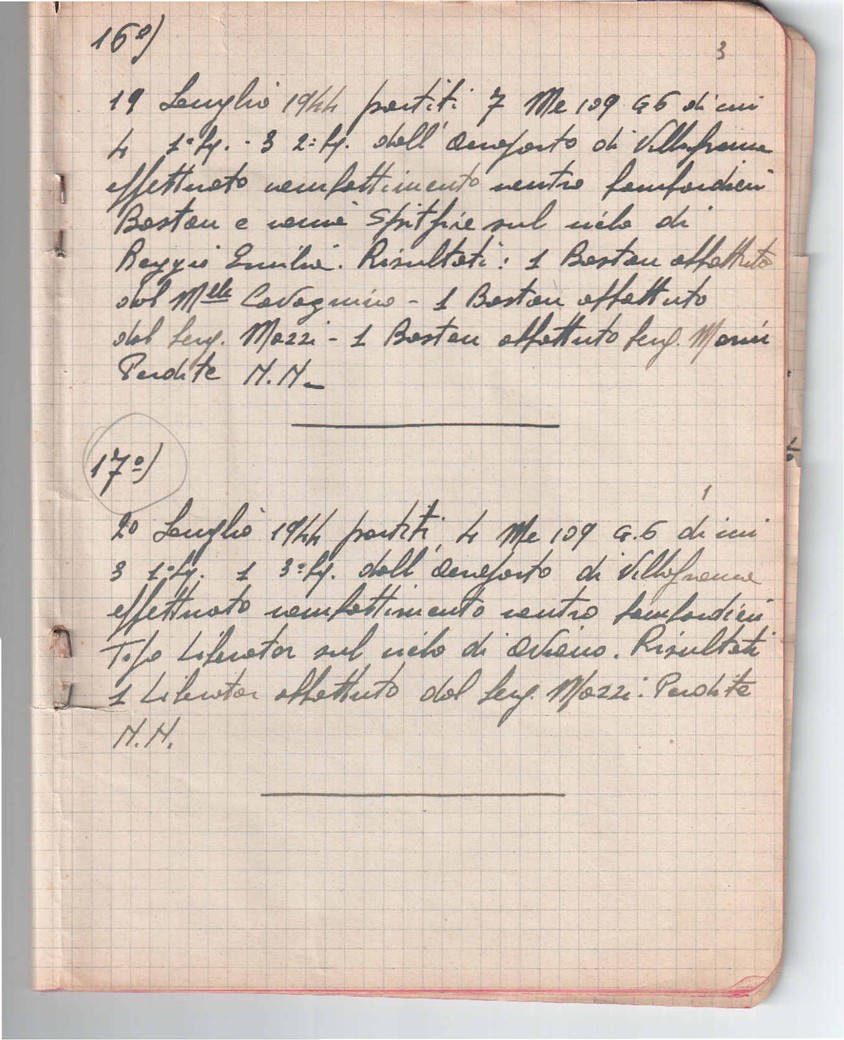 3
16º)
19 Luglio 1944 partiti 7 Me 109 G6 di cui
4 1ª Sq. - 3 2ª Sq. dall'aeroporto di Villafranca
effettuato combattimento contro bombardieri
Boston e caccia Spitfire sul cielo di
Reggio Emilia. Risultati: 1 Boston abbattuto
dal Mllo Cavagnino - 1 Boston abbattuto
dal Serg. Mazzi - 1 Boston abbattuto Serg.
Perdite N.N.
17º)
20 Luglio 1944 partiti 4 Me 109 G.6 di cui
3 1ª Sq. 1 3ª Sq. dall'aeroporto di Villafranca
effettuato combattimento contro bombardieri
Tipo Liberator sul cielo di Aviano. Risultati
1 Liberator abbattuto dal Serg. Mazzi. Perdite
N.N.